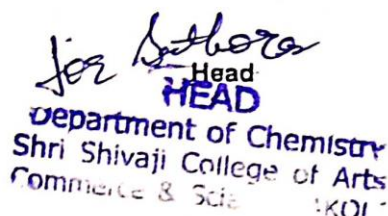 for
Head
HEAD
Department of Chemistry
Shri Shivaji College of Arts
Commerce &